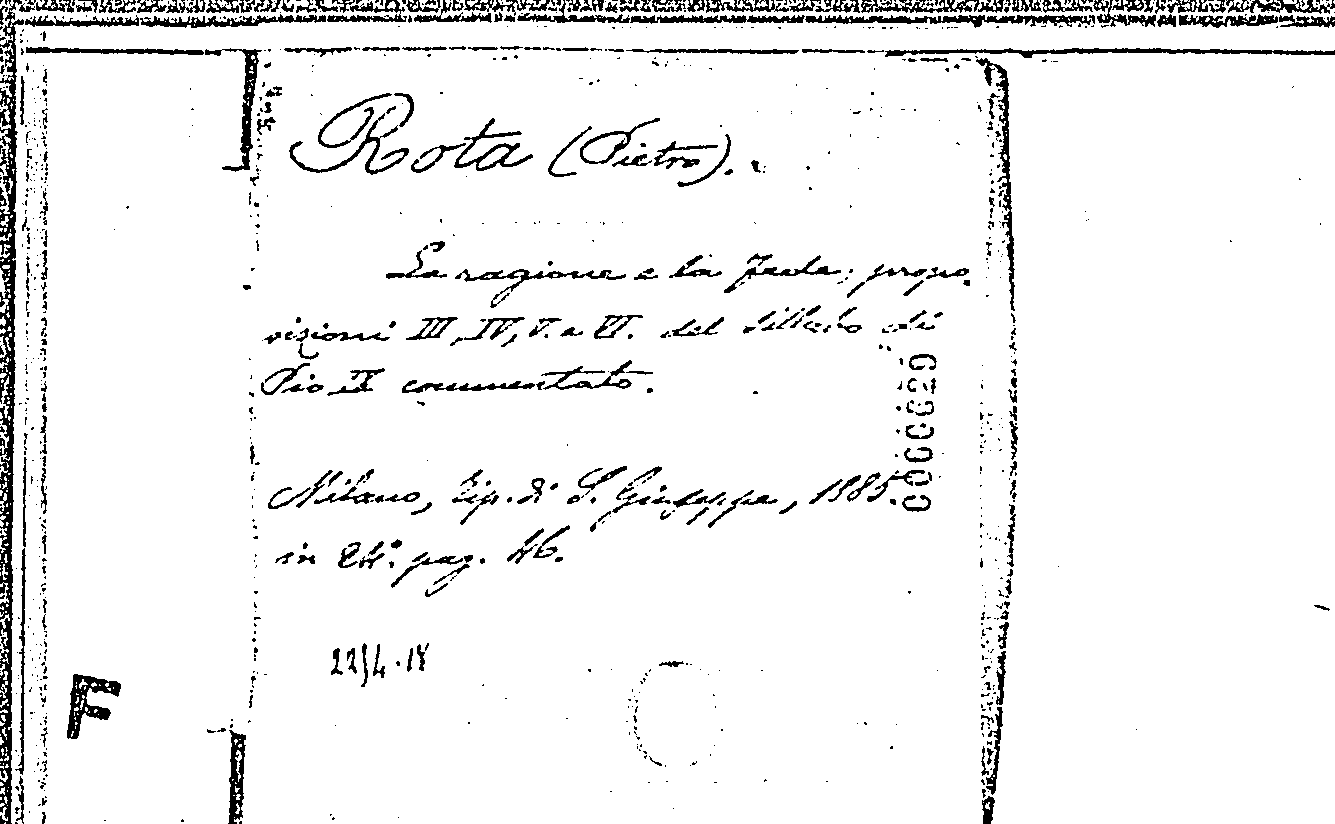 Rota (Pietro).
La ragione e la fede; propo-
sizioni III, IV, V. e VI. del Sillabo di
Pio IX commentato.
Milano, Tip. di S. Giuseppe, 1885.
in 24.° pag. 46.
22/4-18
F
0000029